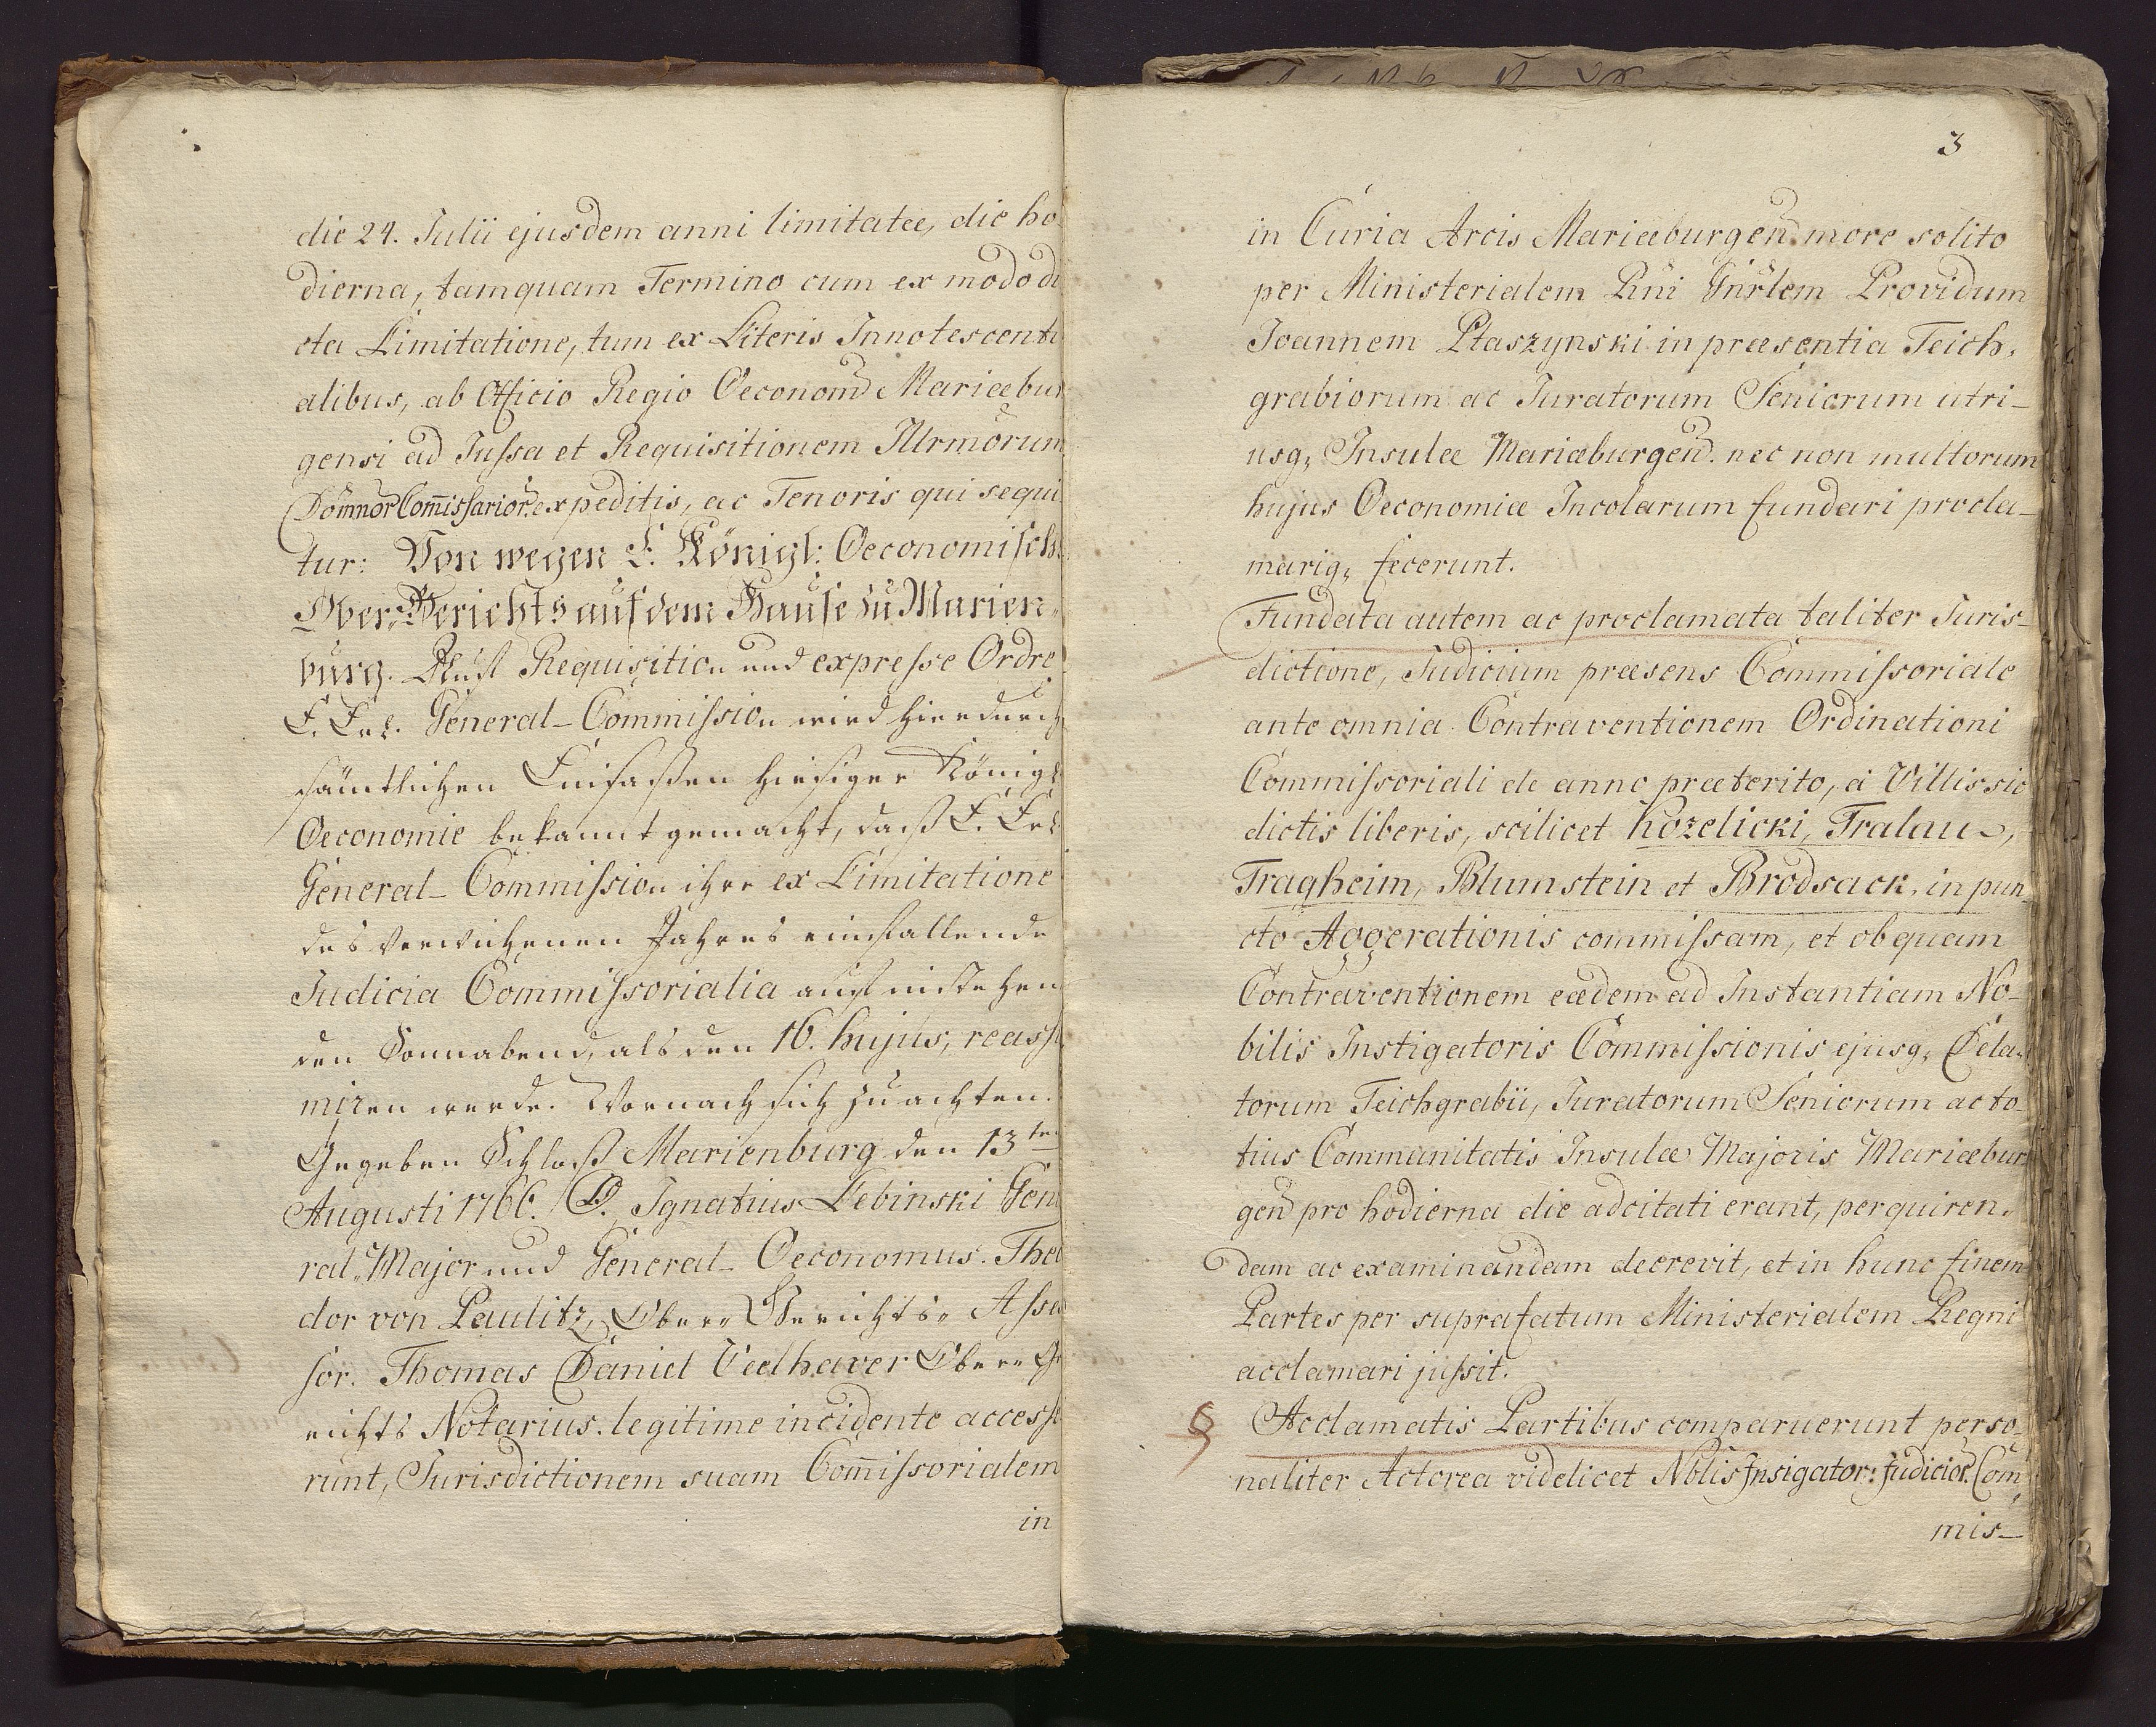 die 24. Julii ejusdem anni limitatæ, die ho
dierna, tamquam Termino cum ex modo di
cta Limitatione, tum ex Literis Innotescenti
alibus, ab Officio Regio Oeconom Mariæbur
gensi ad Jussa et Requisitionem Illrmorum
Domnor Com̄issarior. expeditis, ac Tenoris qui sequi
tur: Von wegen E. Königl: Oeconomisch.
Ober-Gerichts auf dem Hause zu Marien-
burg. Auf Requisition und expresse Ordre
E. Erl. General-Commission wird hierdurch
sämtlichen Einsaßen hiesiger Königl
Oeconomie bekannt gemacht, daß E. Erl.
General-Commission ihre ex Limitatione
des verwichenen Jahres einfallende
Judicia Commissorialia auf nistehen
den Sonnabend, als den 16. hujus, reassu
miren werde. Wornach sich zu achten.
Gegeben Schloß Marienburg den 13ten
Augusti 1766. O. Ignatius Lebinski Gene
ral-Major und General-Oeconomus. Theo
dor von Paulitz, Ober-Gerichts-Asses
sor. Thomas Daniel Veelhaver Ober-Ge
richts Notarius. legitime incidente accesse
runt, Jurisdictionem suam Com̄issorialem
in
3
in Curia Arcis Mariæburgen. more solito
per Ministerialem Rni Gnrlem Providum
Joannem Ptaszynski in præsentia Teich,
grabiorum ac Juratorum Seniorum utri-
usq, Insulæ Mariæburgen. nec non multorum
hujus Oeconomiæ Incolarum fundari procla-
mariq, fecerunt.
Fundata autem ac proclamata taliter Juris-
dictione, Judicium præsens Commissoriale
ante omnia Contraventionem Ordinationi
Commissoriali de anno præterito, a Villis sic
dictis liberis, scilicet Kozelicki, Tralau,
Tragheim, Blumstein et Brodsack, in pun
cto Aggerationis commissam, et ob quam
Contraventionem eædem ad Instantiam No-
bilis Instigatoris Commissionis ejusq, Dela-
torum Teichgrabii, Juratorum Seniorum ac to-
tius Communitatis Insulæ Majoris Mariæbur
gen pro hodierna die adcitati erant, perquiren,
dam ac examinandam decrevit, et in hunc finem
Partes per suprafatum Ministerialem Regni
acclamari jussit.
§ Acclamatis Partibus comparuerunt perso-
naliter Actorea videlicet Nblis Insigator: Judicior. Com,
mis-